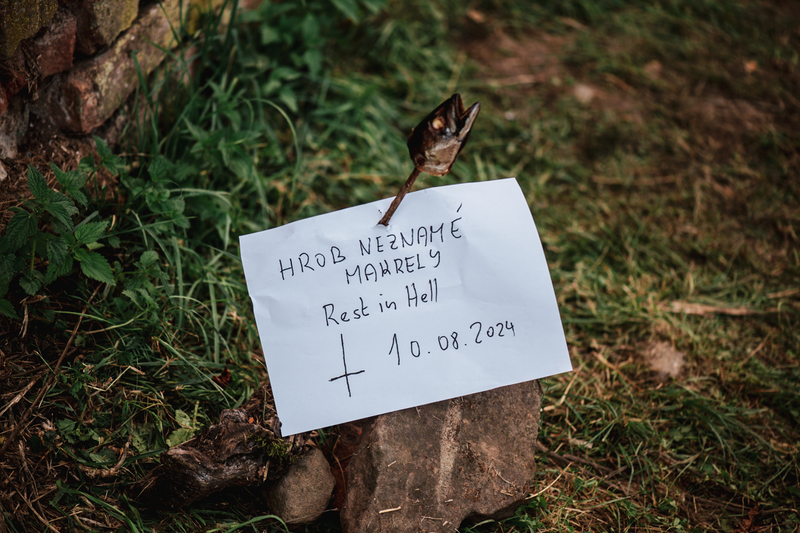 HROB NEZNAMÉ
MAKRELY
Rest in Hell
10.08.2024